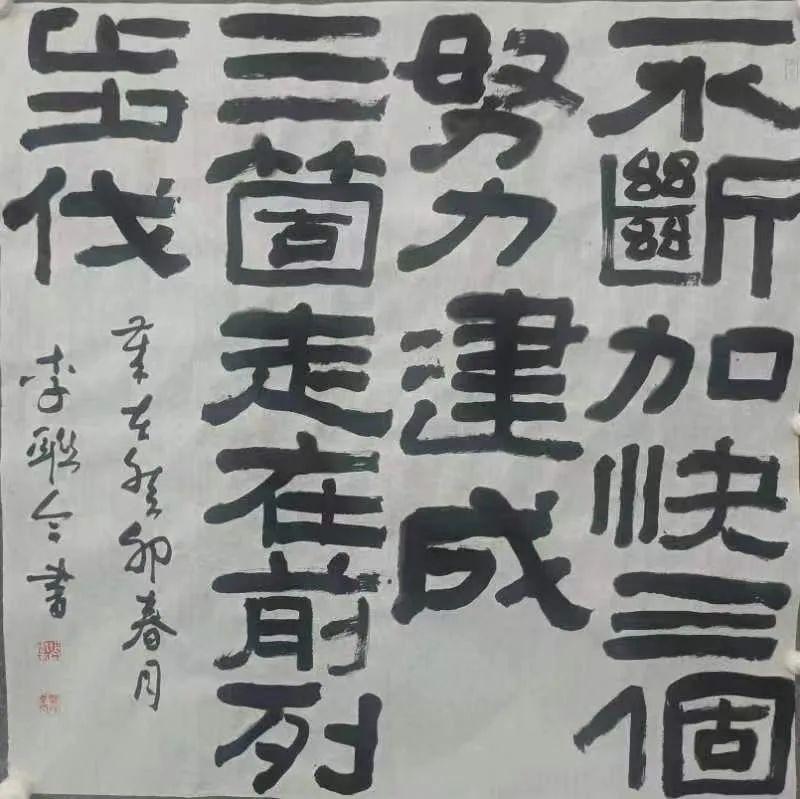 不斷加快三個
努力建成
三箇走在前列
步伐
歲在癸卯春月
李聯書